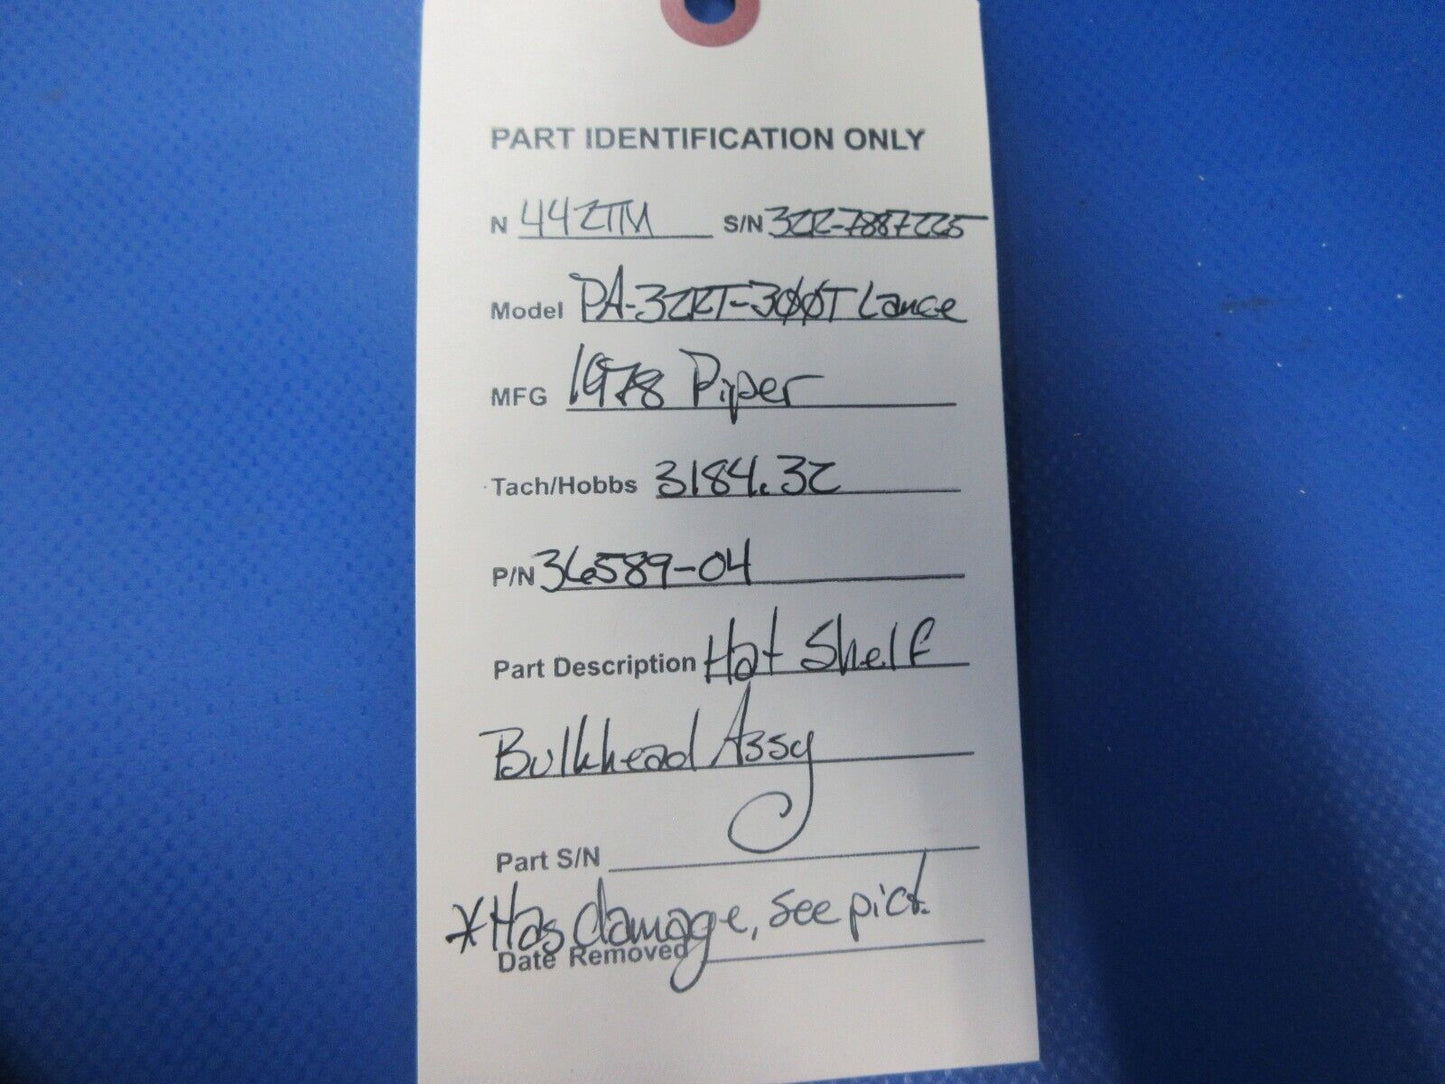 PART IDENTIFICATION ONLY
N 442TM S/N 32R-7887225
Model PA-32RT-300T Lance
MFG 1978 Piper
Tach/Hobbs 3184.32
P/N 36589-04
Part Description Hat Shelf
Bulkhead Assy
Part S/N
*Has damage, see pict.
Date Removed